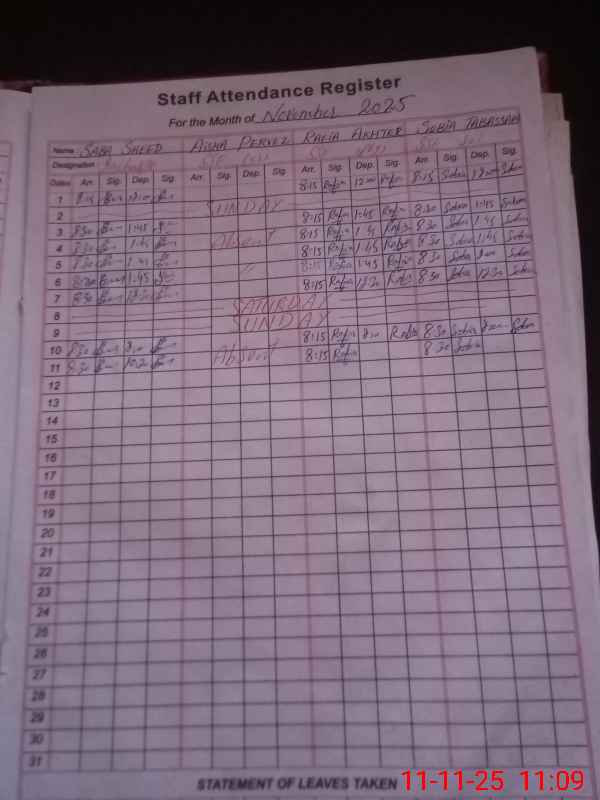 Staff Attendance Register
For the Month of November 2025
Name SABA SAEED AISHA PERVEZ RAFIA AKHTER SOBIA TABASSAM
Designation
Dates Arr. Sig. Dep. Sig. Arr. Sig. Dep. Sig. Arr. Sig. Dep. Sig. Arr. Sig. Dep. Sig.
1 8:15 8:15 Rafia 12:00 Rafia 8:15 Sobia Sobia
2 SUNDAY
3 8:30 1:45 8:15 Rafia 1:45 Rafia 8:30 Sobia 1:45 Sobia
4 8:30 1:45 Absent 8:15 Rafia 1:45 Rafia 8:30 Sobia 1:45 Sobia
5 8:30 1:45 8:15 Rafia 1:45 Rafia 8:30 Sobia 1:45 Sobia
6 8:30 1:45 " 8:15 Rafia 1:45 Rafia 8:30 Sobia Sobia
7 8:30 12:30 8:15 Rafia 12:30 Rafia 8:30 Sobia 12:30 Sobia
8 SATURDAY
9 SUNDAY
10 8:30 8:15 Rafia Rafia 8:30 Sobia Sobia
11 8:30 Absent 8:15 Rafia 8:30 Sobia
12
13
14
15
16
17
18
19
20
21
22
23
24
25
26
27
28
29
30
31
STATEMENT OF LEAVES TAKEN
11-11-25 11:09